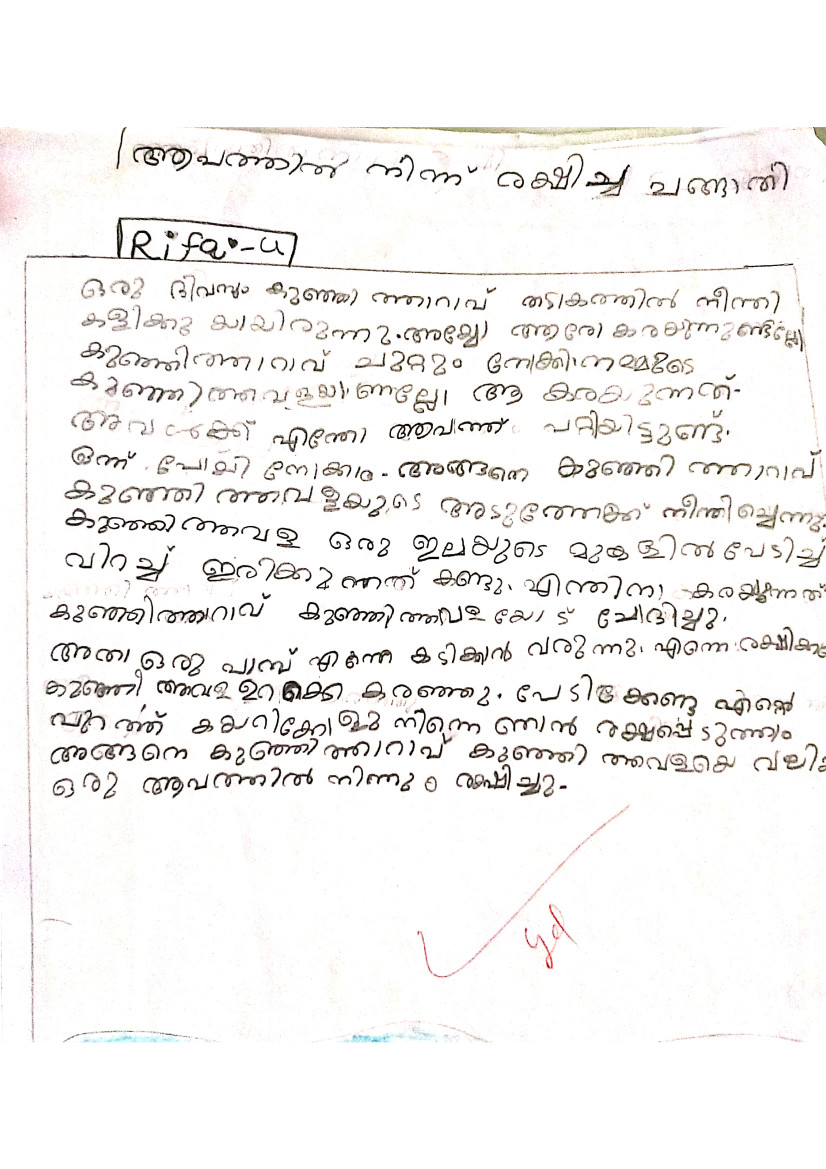 ആപത്തിൽ നിന്ന് രക്ഷിച്ച ചങ്ങാതി
Rifa-U
ഒരു ദിവസം കുഞ്ഞി ത്താറാവ് തടാകത്തിൽ നീന്തി
കളിക്കു യായിരുന്നു. അയ്യോ ആരോ കരയുന്നുണ്ടല്ലോ
കുഞ്ഞിത്താറാവ് ചുറ്റും നോക്കി. നമ്മുടെ
കുഞ്ഞി ത്തവളയാണല്ലോ ആ കരയുന്നത്.
അവൾക്ക് എന്തോ ആപത്ത് പറ്റിയിട്ടുണ്ട്.
ഒന്ന് പോയി നോക്കാം. അങ്ങനെ കുഞ്ഞി ത്താറാവ്
കുഞ്ഞി ത്തവളയുടെ അടുത്തേക്ക് നീന്തിച്ചെന്നു.
കുഞ്ഞി ത്തവള ഒരു ഇലയുടെ മുകളിൽ പേടിച്ച്
വിറച്ച് ഇരിക്കുന്നത് കണ്ടു. എന്തിനാ കരയുന്നത്
കുഞ്ഞിത്താറാവ് കുഞ്ഞിത്തവളയോട് ചോദിച്ചു.
അതാ ഒരു പാമ്പ് എന്നെ കടിക്കാൻ വരുന്നു. എന്നെ രക്ഷിക്കൂ
കുഞ്ഞി ത്തവള ഉറക്കെ കരഞ്ഞു. പേടിക്കേണ്ട എന്റെ
പുറത്ത് കയറിക്കോളു നിന്നെ ഞാൻ രക്ഷപ്പെടുത്താം
അങ്ങനെ കുഞ്ഞിത്താറാവ് കുഞ്ഞി ത്തവളയെ
ഒരു ആപത്തിൽ നിന്നും രക്ഷിച്ചു.
gd